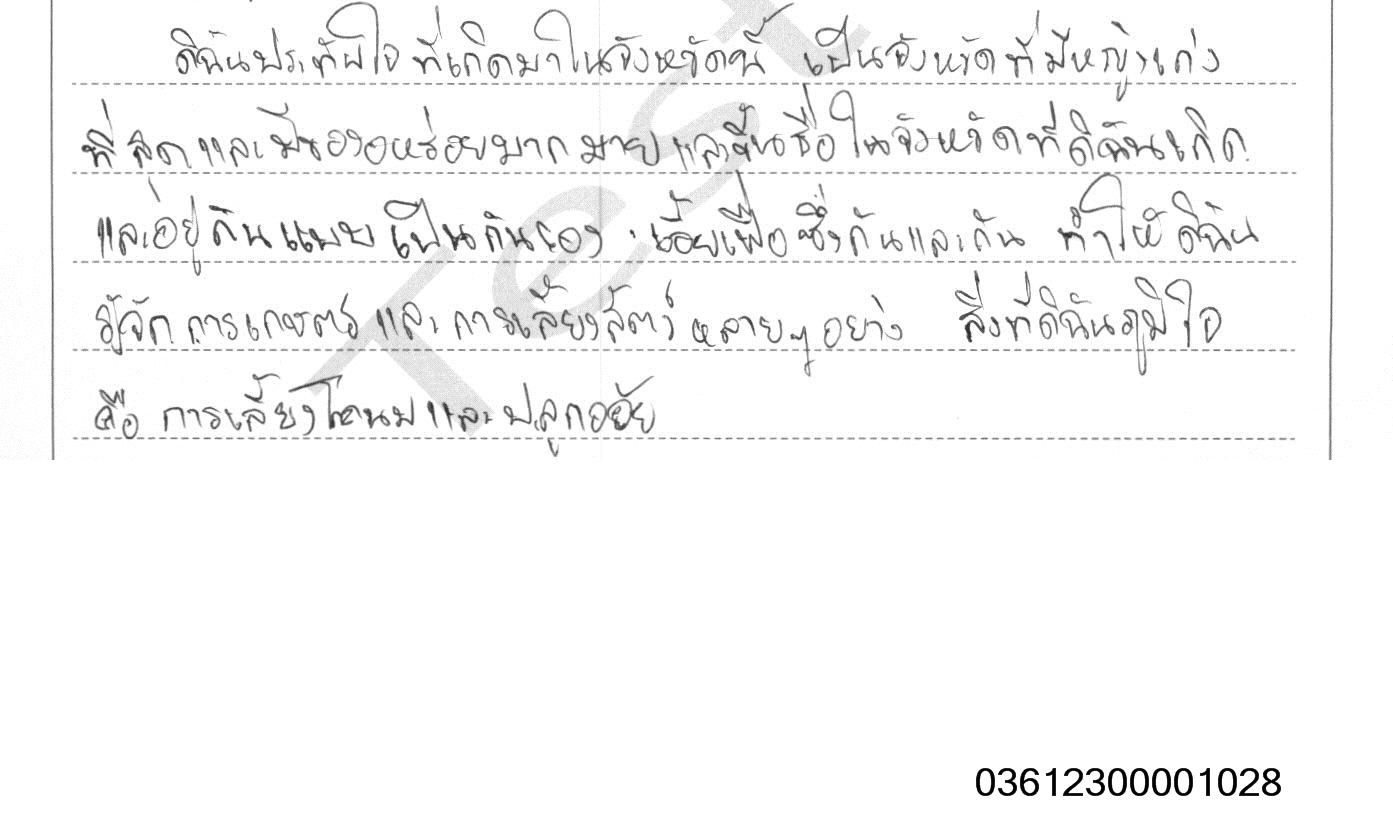 ดิฉันประทับใจ ที่เกิดมาในจังหวัดนี้ เป็นจังหวัดที่มีหญิงเก่ง
ที่สุด และมีของอหร่อยมากมาย และขึ้นชื่อ ในจังหวัดที่ดิฉันเกิด
และอยู่กันแบบเป็นกันเอง เอื้อยเฟื้อซึ่งกันและกัน ทำให้ดิฉัน
รู้จักการเกษตร และการเลี้ยงสัตว์ หลายๆอย่าง สิ่งที่ดิฉันภูมิใจ
คือ การเลี้ยงโคนมและปลูกอ้อย
Test
03612300001028